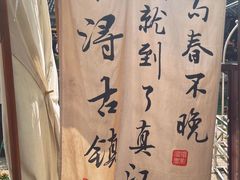 句春不晚
就到了真江
浔古镇